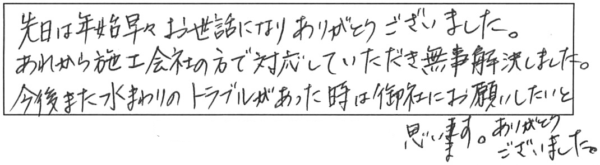 先日は年始早々お世話になりありがとうございました。
あれから施工会社の方で対応していただき無事解決しました。
今後また水まわりのトラブルがあった時は御社にお願いしたいと
思います。ありがとう
ございました。